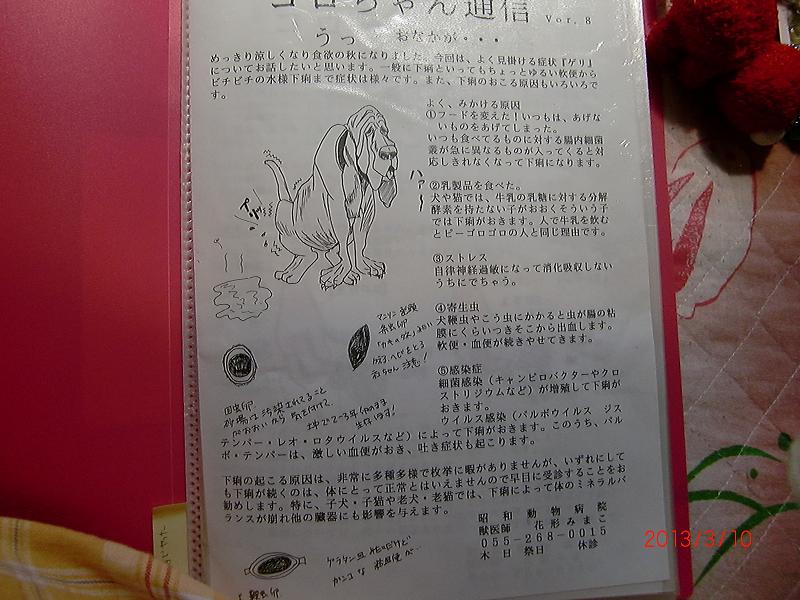 コロちゃん通信 Vor. 8
うっ おなかが・・・
めっきり涼しくなり食欲の秋になりました。今回は、よく見掛ける症状『ゲリ』
についてお話したいと思います。一般に下痢といってもちょっとゆるい軟便から
ビチビチの水様下痢まで症状は様々です。また、下痢のおこる原因もいろいろで
す。
よく、みかける原因
①フードを変えた！いつもは、あげな
いものをあげてしまった。
いつも食べてるものに対する腸内細菌
叢が急に異なるものが入ってくると対
応しきれなくなって下痢になります。
②乳製品を食べた。
犬や猫では、牛乳の乳糖に対する分解
酵素を持たない子がおおくそういう子
では下痢がおきます。人で牛乳を飲む
とピーゴロゴロの人と同じ理由です。
③ストレス
自律神経過敏になって消化吸収しない
うちにでちゃう。
④寄生虫
犬鞭虫やこう虫にかかると虫が腸の粘
膜にくらいつきそこから出血します。
軟便・血便が続きやせてきます。
⑤感染症
細菌感染（キャンピロバクターやクロ
ストリジウムなど）が増殖して下痢が
おきます。
ウイルス感染（パルボウイルス ジス
テンパー・レオ・ロタウイルスなど）によって下痢がおきます。このうち、パル
ボ・テンパーは、激しい血便がおき、吐き症状も起こります。
下痢の起こる原因は、非常に多種多様で枚挙に暇がありませんが、いずれにして
も下痢が続くのは、体にとって正常とはいえませんので早目に受診することをお
勧めします。特に、子犬・子猫や老犬・老猫では、下痢によって体のミネラルバ
ランスが崩れ他の臓器にも影響を与えます。
昭和動物病院
獣医師 花形みまこ
055-268-0015
木日祭日 休診
ハァー
マンソン裂頭
条虫卵
回虫卵
砂場は汚染されてること
がおおいから気を付けて
土中で2~3年そのまま
生存します！
2013/3/10